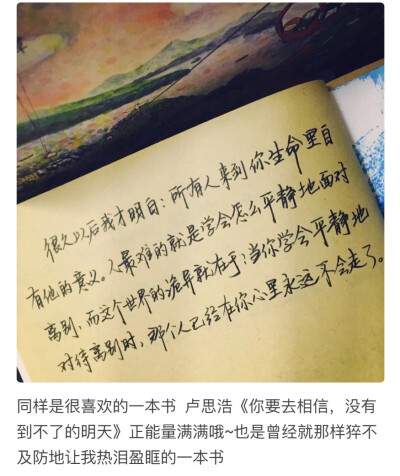 很久以后我才明白：所有人来到你生命里自
有他的意义。人最难的就是学会怎么平静地面对
离别，而这个世界的诡异就在于：当你学会平静地
对待离别时，那个人已经在你心里永远不会走了。
同样是很喜欢的一本书 卢思浩《你要去相信，没有
到不了的明天》正能量满满哦~也是曾经就那样猝不
及防地让我热泪盈眶的一本书